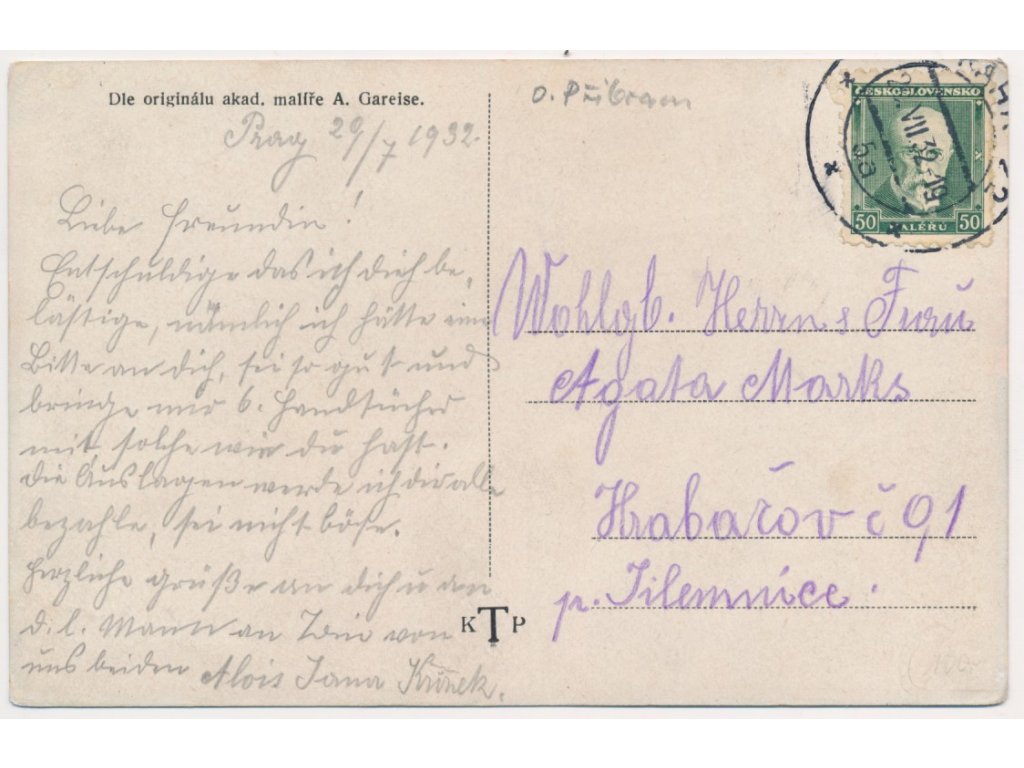 Dle originálu akad. malíře A. Gareise.
Prag 29/7 1932.
Liebe Freundin!
Entschuldige das ich dich be-
lästige, nämlich ich hätte eine
Bitte an dich, sei so gut und
bringe mir 6. Handtücher
mit, solche wie du hast.
die Auslagen werde ich dir alle
bezahle, sei nicht böse.
Herzliche Grüße an dich u an
d. l. Mann an von
uns beiden Alois Jana
K T P
o. Příbram
ČESKOSLOVENSKO
50 HALÉŘŮ 50
29. VII 32-19
5a
Wohlgb. Herrn & Frau
Agata Marks
Hrabačov č 91
p. Jilemnice.
(100-